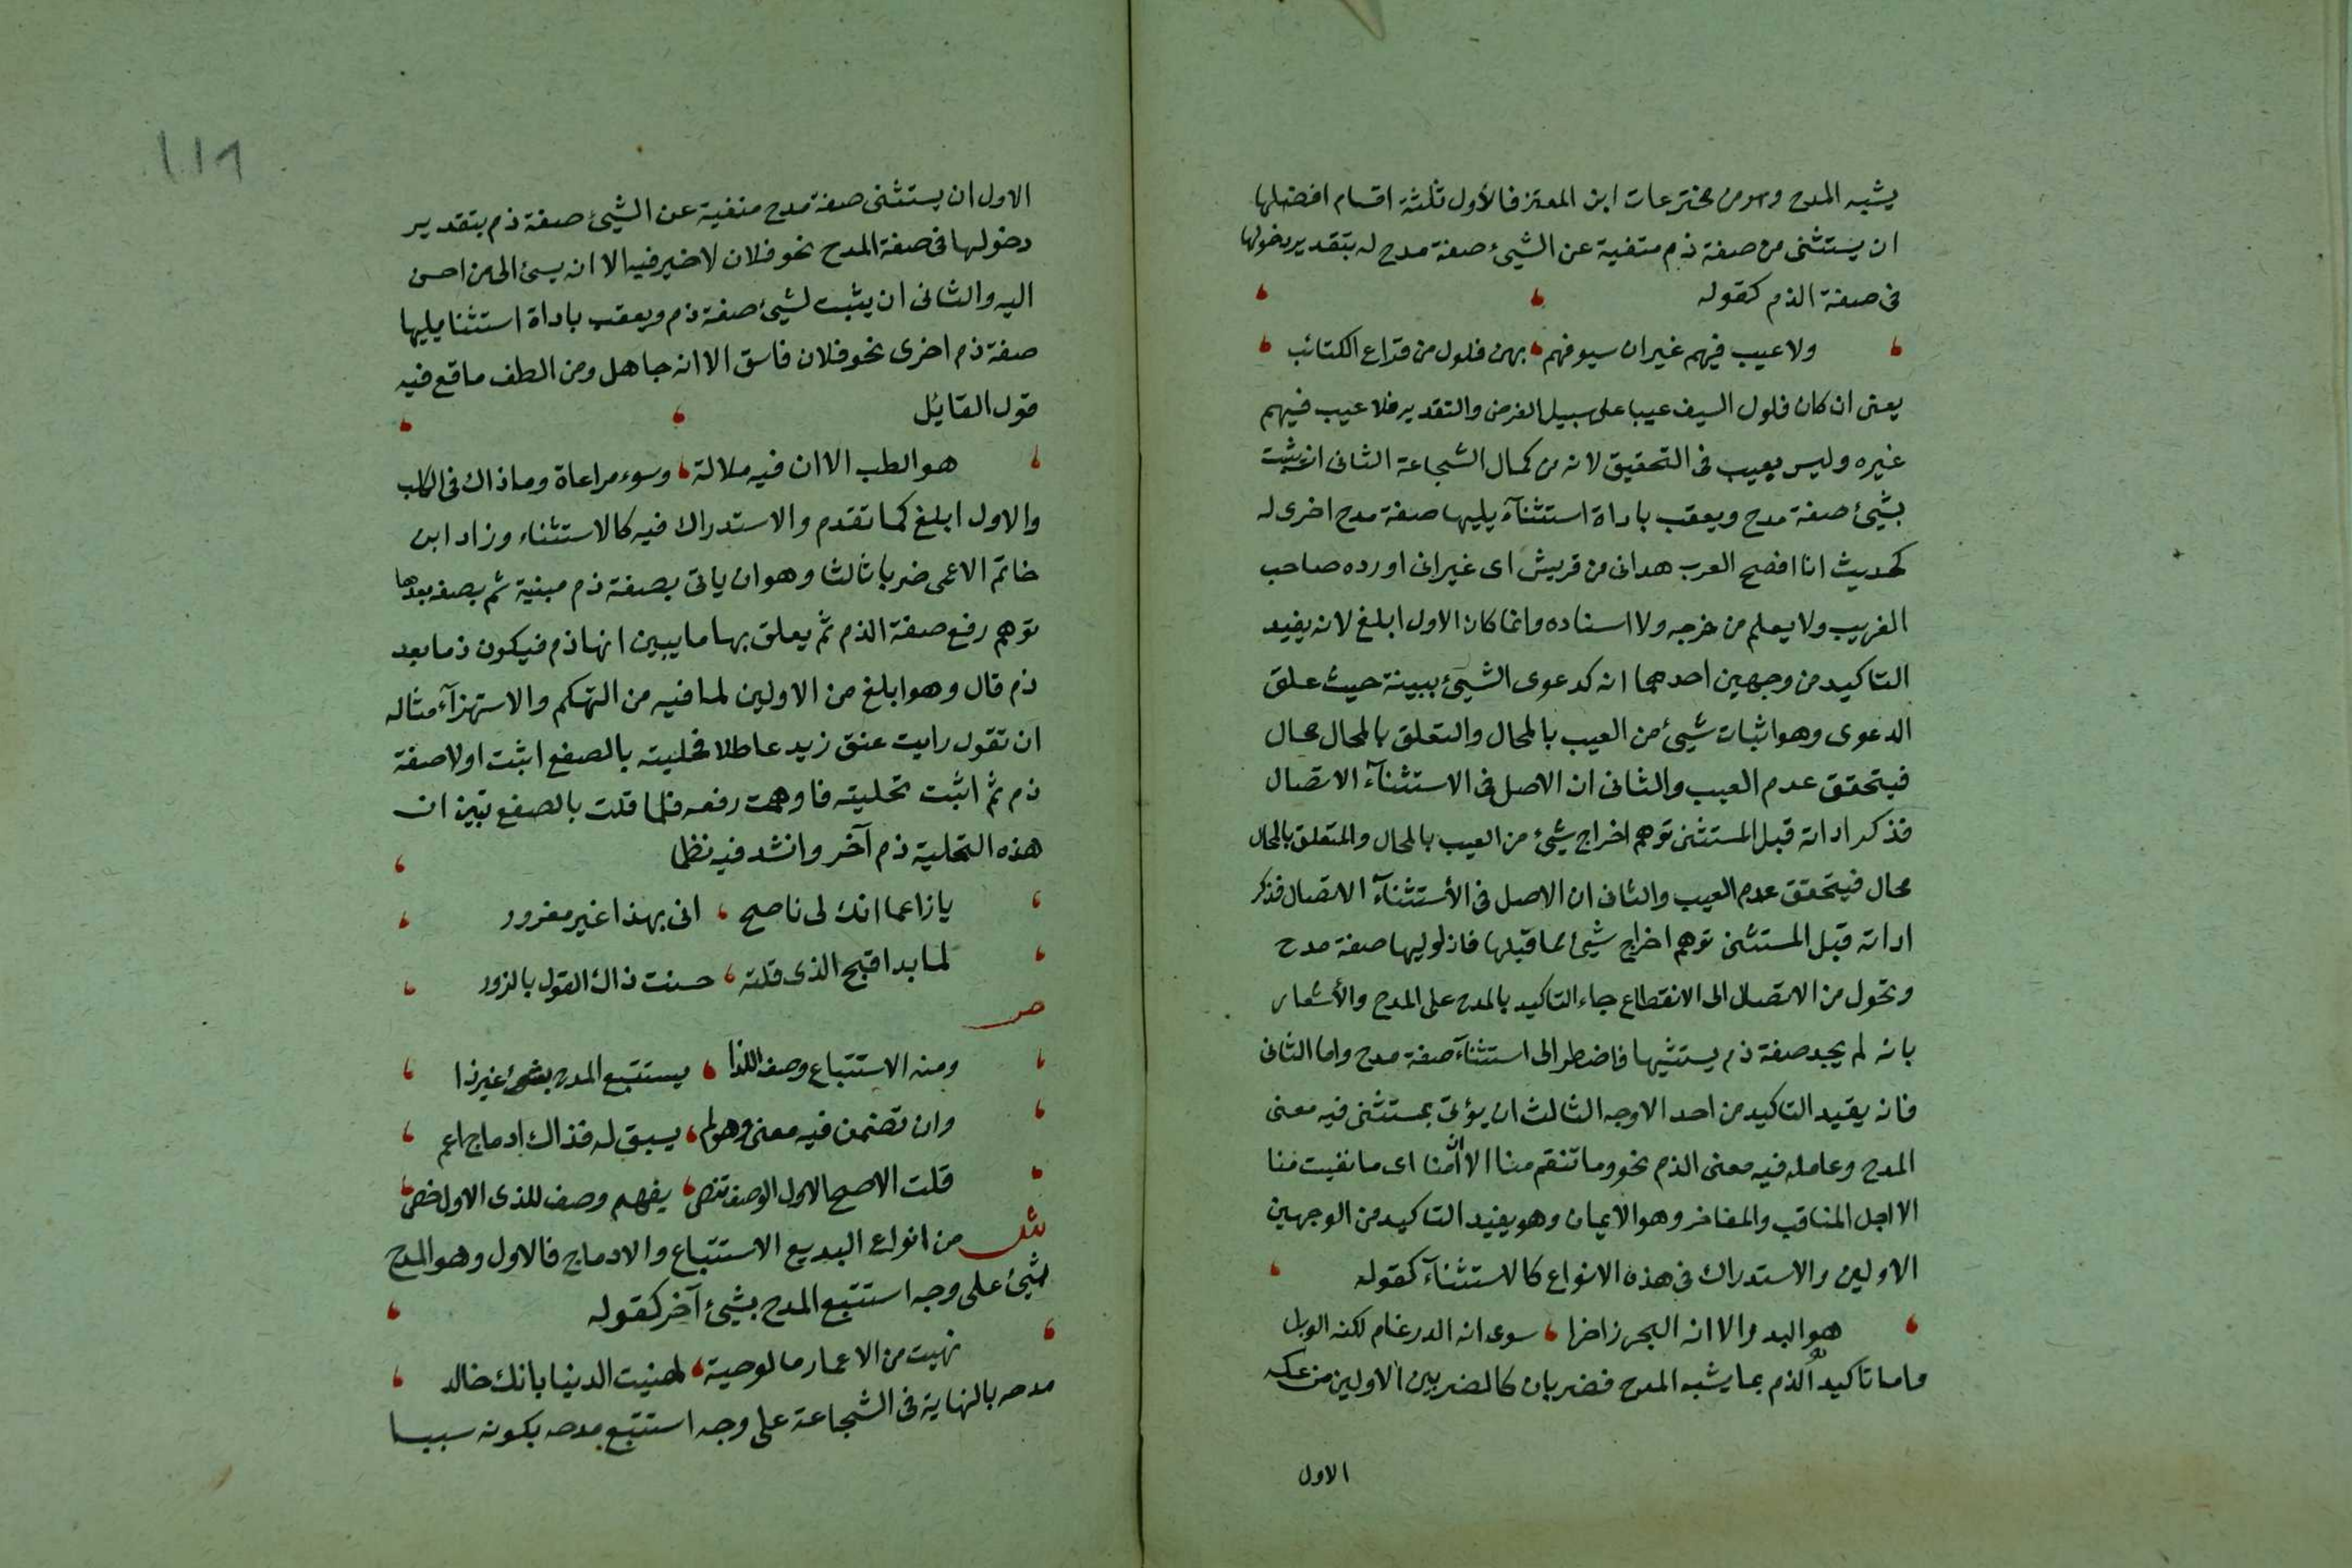 يشبه المدح وهو من مخترعات ابن المعتز فالأول ثلثة اقسام افضلها
ان يستثنى من صفة ذم منفية عن الشيئ صفة مدح له بتقدير دخولها
فى صفة الذم كقوله
ولا عيب فيهم غير ان سيوفهم بهن فلول من قراع الكتائب
يعنى ان كان فلول السيف عيبا على سبيل الفرض والتقدير فلا عيب فيهم
غيره وليس بعيب فى التحقيق لانه من كمال الشجاعة الثانى ان يثبت
بشيئ صفة مدح ويعقب باداة استثنآء يليها صفة مدح اخرى له
كحديث انا افضح العرب هدانى من قريش اى غير انى اورده صاحب
الغريب ولا يعلم من خرجه ولا اسناده وانما كان الاول ابلغ لانه يفيد
التاكيد من وجهين احدهما انه كدعوى الشيئ ببينة حيث علق
الدعوى وهو اثبات شيئ من العيب بالمحال والتعلق بالمحال محال
فيتحقق عدم العيب والثانى ان الاصل فى الاستثنآء الاتصال
فذكر اداته قبل المستثنى توهم اخراج شيئ من العيب بالمحال والمتعلق بالمحال
محال فيتحقق عدم العيب والثانى ان الاصل فى الأستثنآء الاتصال فذكر
اداته قبل المستثنى توهم اخراج شيئ لما قبلها فاذا وليها صفة مدح
وتحول من الاتصال الى الانقطاع جاء التاكيد بالمدح على المدح والأشعار
بانه لم يجد صفة ذم يستثيها فاضطر الى استثنآء صفة مدح واما الثانى
فانه يقيد التاكيد من احد الاوجه الثالث ان يؤتى بمستثنى فيه معنى
المدح وعامله فيه معنى الذم نحو وما تنقم منا الا ان آمنا اى ما نفيت منا
الا اجل المناقب والمفاخر وهو الايمان وهو يفيد التاكيد من الوجهين
الاولين والاستدراك فى هذه الانواع كالاستثنآء كقوله
هو البدر الا انه البحر زاخرا سوى انه الدرغام لكنه الوبل
واما تاكيد الذم بما يشبه المدح فضربان كالضربين الاولين من عكسه
الاول
١١٩
الاول ان يستثنى صفة مدح منفية عن الشيئ صفة ذم بتقدير
دخولها فى صفة المدح نحو فلان لا خير فيه الا انه يسئ الى من احسن
اليه والثانى ان يثبت لشيئ صفة ذم ويعقب باداة استثنا يليها
صفة ذم اخرى نحو فلان فاسق الا انه جاهل ومن الطف ما قع فيه
قول القايل
هو الطب الا ان فيه ملالة وسوء مراعاة وما ذاك فى الكلب
والاول ابلغ كما تقدم والاستدراك فيه كالاستثناء وزاد ابن
خاتم الاعمى ضربا ثالثا وهو ان ياتى بصفة ذم مبنية ثم بصفه بعدها
توهم رفع صفة الذم ثم يعلق بها ما يبين انها ذم فيكون ذما بعد
ذم قال وهو ابلغ من الاولين لما فيه من التهكم والاستهزآء مثاله
ان تقول رايت عنق زيد عاطلا فحليته بالصفع اثبت اولا صفة
ذم ثم اثبت تحليته فاوهمت رفعه فلما قلت بالصفع تبين ان
هذه التحلية ذم آخر وانشد فيه نظما
يا زاعما انك لى ناصح انى بهذا غير مغرور
لما بدا قبح الذى قلته حسنت ذاك القول بالزور
ص
ومنه الاستتباع وصف اللذا يستتبع المدح بشئ غير ذا
وان تضمن فيه معنى وهو لم يسبق له فذاك ادماج اعم
قلت الاصح الاول الوصف تنص يفهم وصف للذى الاول خص
ش من انواع البديع الاستتباع والادماج فالاول وهو المدح
بشئ على وجه استتبع المدح بشيئ آخر كقوله
نهبت من الاعمار ما لو حيته لهنيت الدنيا بانك خالد
مدحه بالنهاية فى الشجاعة على وجه استتبع مدحه بكونه سببا